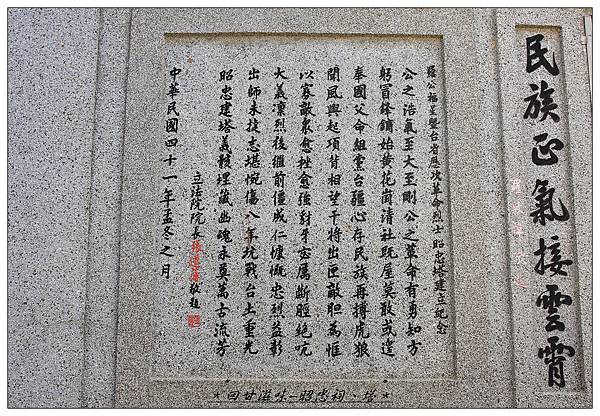 民族正氣接雲霄
羅公福星暨台省歷次革命烈士昭忠塔建立紀念
公之浩氣至大至剛公之革命有勇知方
躬冒鋒鏑始黃花崗清社既屋莫敢或遑
奉國父命組黨台疆心存民族再搏虎狼
聞風興起項背相望干將出匣敵胆為惶
以寡敵眾愈挫愈強對牙志厲斷脰絕吭
大義凜烈後繼前僵成仁慷慨忠烈益彰
出師未捷志堪惋傷八年抗戰台土重光
昭忠建塔義骸埋藏幽魂永奠萬古流芳
立法院院長張道藩敬題
中華民國四十一年孟冬之月
★回甘滋味-昭忠祠、塔★